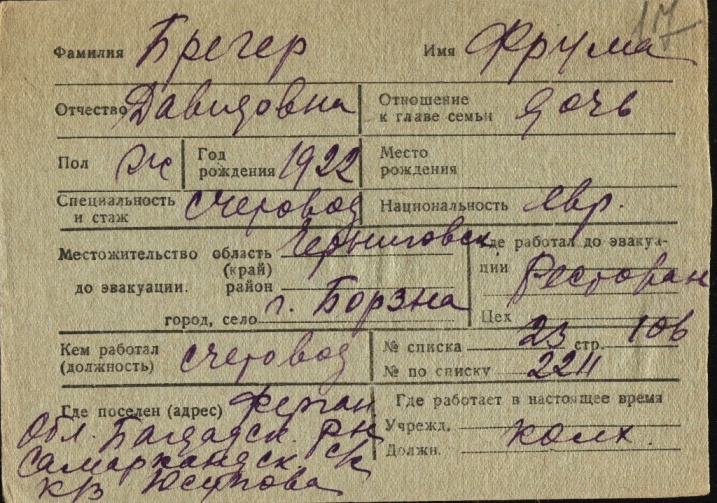 17
Фамилия Брегер Имя Фрума
Отчество Давидовна Отношение к главе семьи дочь
Пол ж Год рождения 1922 Место рождения
Специальность и стаж счетовод Национальность евр.
Местожительство область (край) Черниговск. Где работал до эвакуа-
до эвакуации. район ции Ресторан
город, село г. Борзна Цех
Кем работал (должность) счетовод № списка 23 стр. 106
№ по списку 2211
Где поселен (адрес) Ферган Где работает в настоящее время
Обл. Багдадск. рн Учрежд. колх.
Самаркандск с/с Должн.
к/з Юсупова